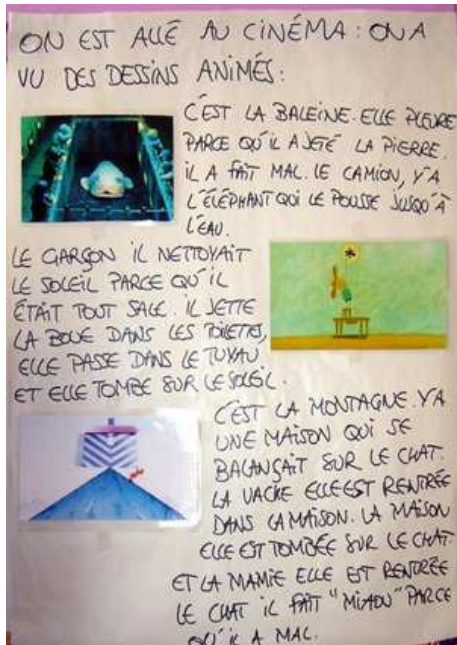 ON EST ALLÉ AU CINÉMA : ON A
VU DES DESSINS ANIMÉS :
C'EST LA BALEINE. ELLE PLEURE
PARCE QU'IL A JETÉ LA PIERRE.
IL A FAIT MAL. LE CAMION, Y'A
L'ÉLÉPHANT QUI LE POUSSE JUSQU'À
L'EAU.
LE GARÇON IL NETTOYAIT
LE SOLEIL PARCE QU'IL
ÉTAIT TOUT SALE. IL JETTE
LA BOUE DANS LES TOILETTES,
ELLE PASSE DANS LE TUYAU
ET ELLE TOMBE SUR LE SOLEIL.
C'EST LA MONTAGNE. Y'A
UNE MAISON QUI SE
BALANÇAIT SUR LE CHAT.
LA VACHE ELLE EST RENTRÉE
DANS LA MAISON. LA MAISON
ELLE EST TOMBÉE SUR LE CHAT.
ET LA MAMIE ELLE EST RENTRÉE
LE CHAT IL FAIT "MIAOU" PARCE
QU'IL A MAL.